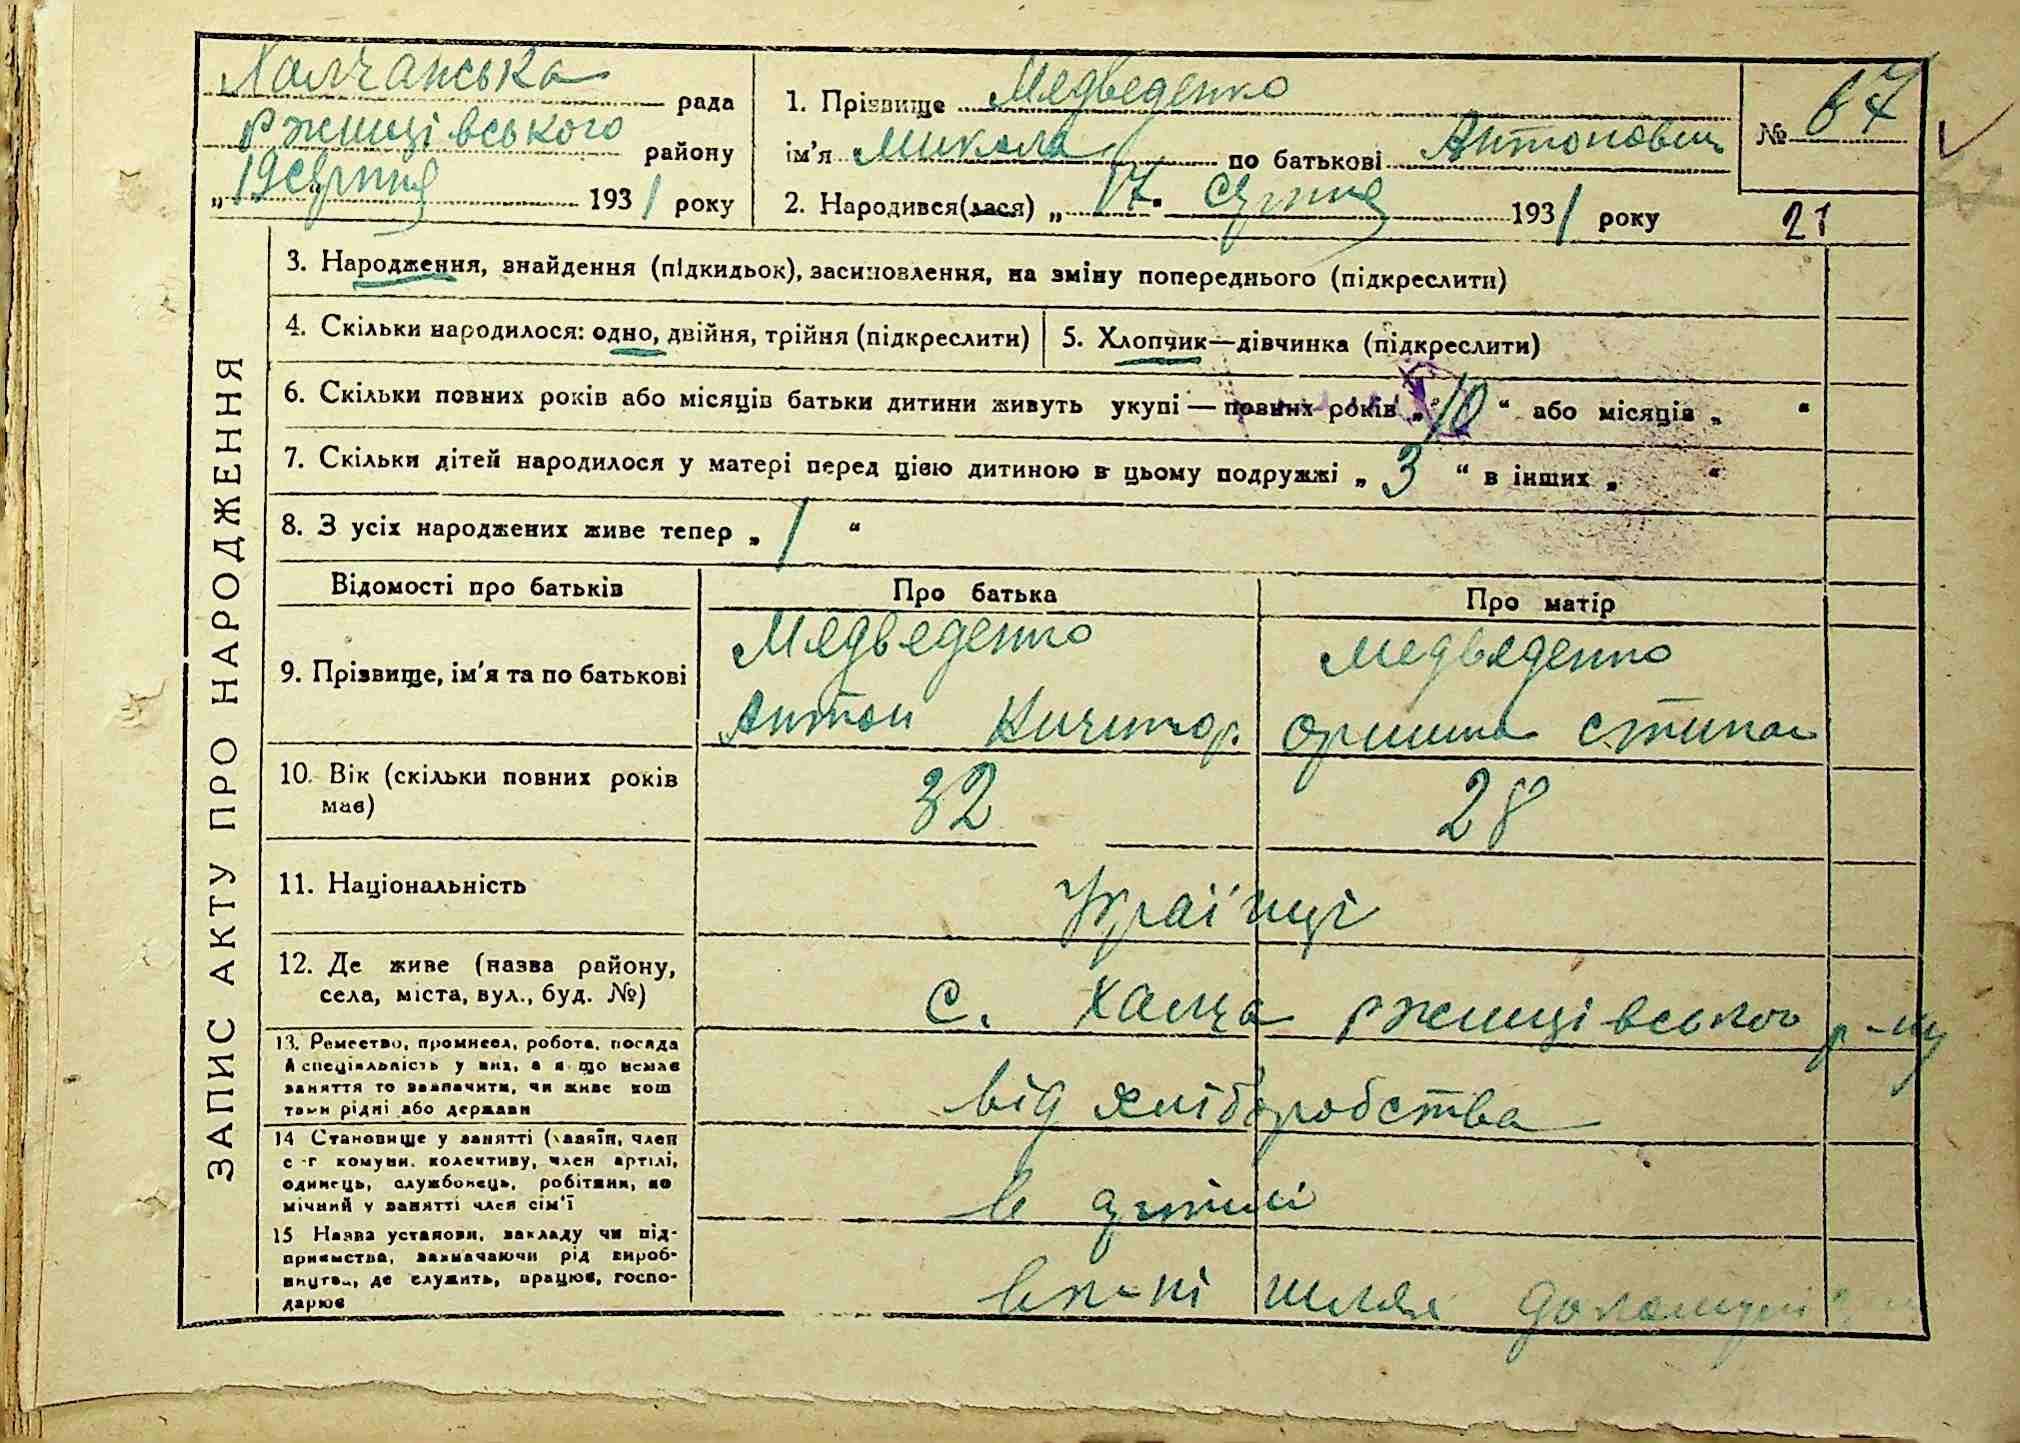 Халчанська рада
Ржищівського району
„19 серпня 1931 року
1. Прізвище Медведенко
ім’я Микола по батькові Антонович
2. Народився(лася) „17. серпня 1931 року
№ 67
21
ЗАПИС АКТУ ПРО НАРОДЖЕННЯ
3. Народження, знайдення (підкидьок), засиновлення, на зміну попереднього (підкреслити)
4. Скільки народилося: одно, двійня, трійня (підкреслити)
5. Хлопчик—дівчинка (підкреслити)
6. Скільки повних років або місяців батьки дитини живуть укупі — повних років „10“ або місяців „ “
7. Скільки дітей народилося у матері перед цією дитиною в цьому подружжі „3“ в інших „ “
8. З усіх народжених живе тепер „1“
Відомості про батьків Про батька Про матір
9. Прізвище, ім’я та по батькові
Медведенко
Антон
Медведенко
Орина
10. Вік (скільки повних років
має)
32 28
11. Національність
Українці
12. Де живе (назва району,
села, міста, вул., буд. №)
с. Халча Ржищівського р-ну
13. Ремество, промисел, робота, посада
й спеціяльність у них, а якщо немає
заняття то зазначити, чи живе кош
тами рідні або держави
від хліборобства
14 Становище у занятті (хазяїн, член
с-г комуни, колективу, член артілі,
одинець, службовець, робітник, по
мічний у занятті член сім’ї
в артілі
15 Назва установи, закладу чи під-
приємства, зазначаючи рід вироб-
ництва, де служить, працює, госпо-
дарює
шлях до